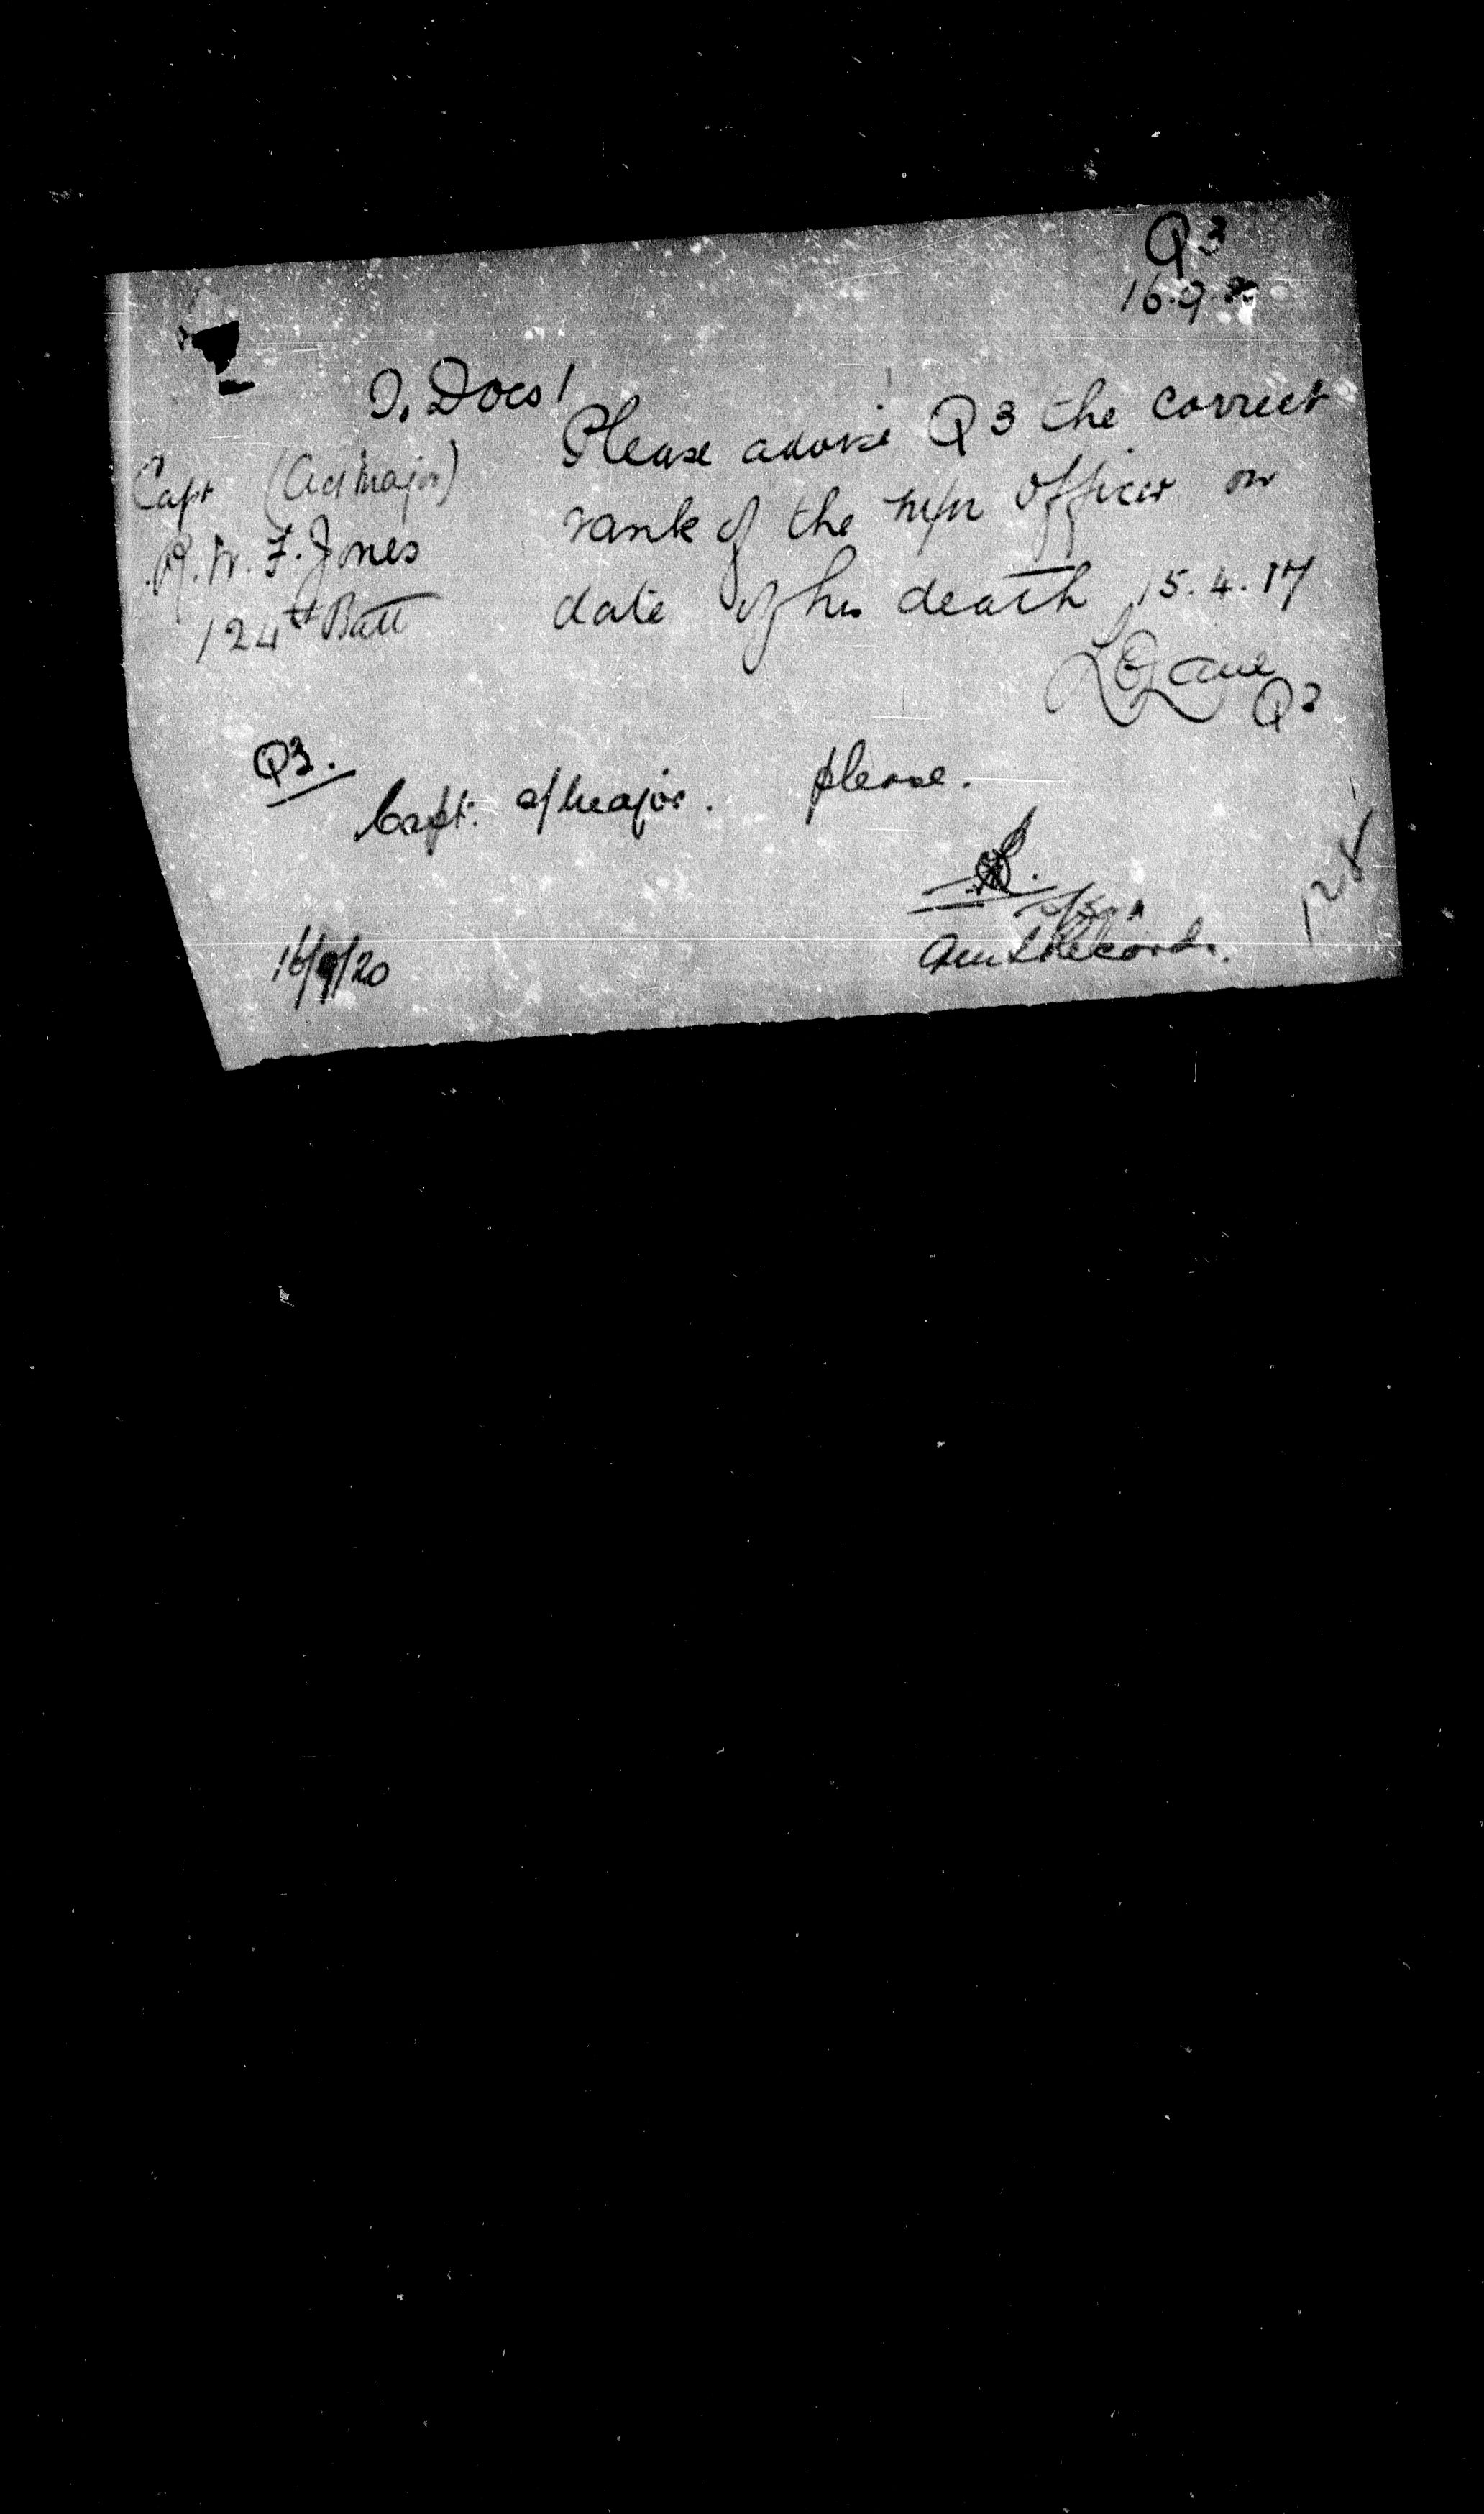 Q3
16.9.20
O, Docs!
Please advise Q3 the correct
Capt (Act Major)
rank of the m/n Officer on
R. W. F. Jones
date of his death 15.4.17
124th Batt
Q3
Q3.
Capt. a/Major. please.
128
Records.
16/9/20